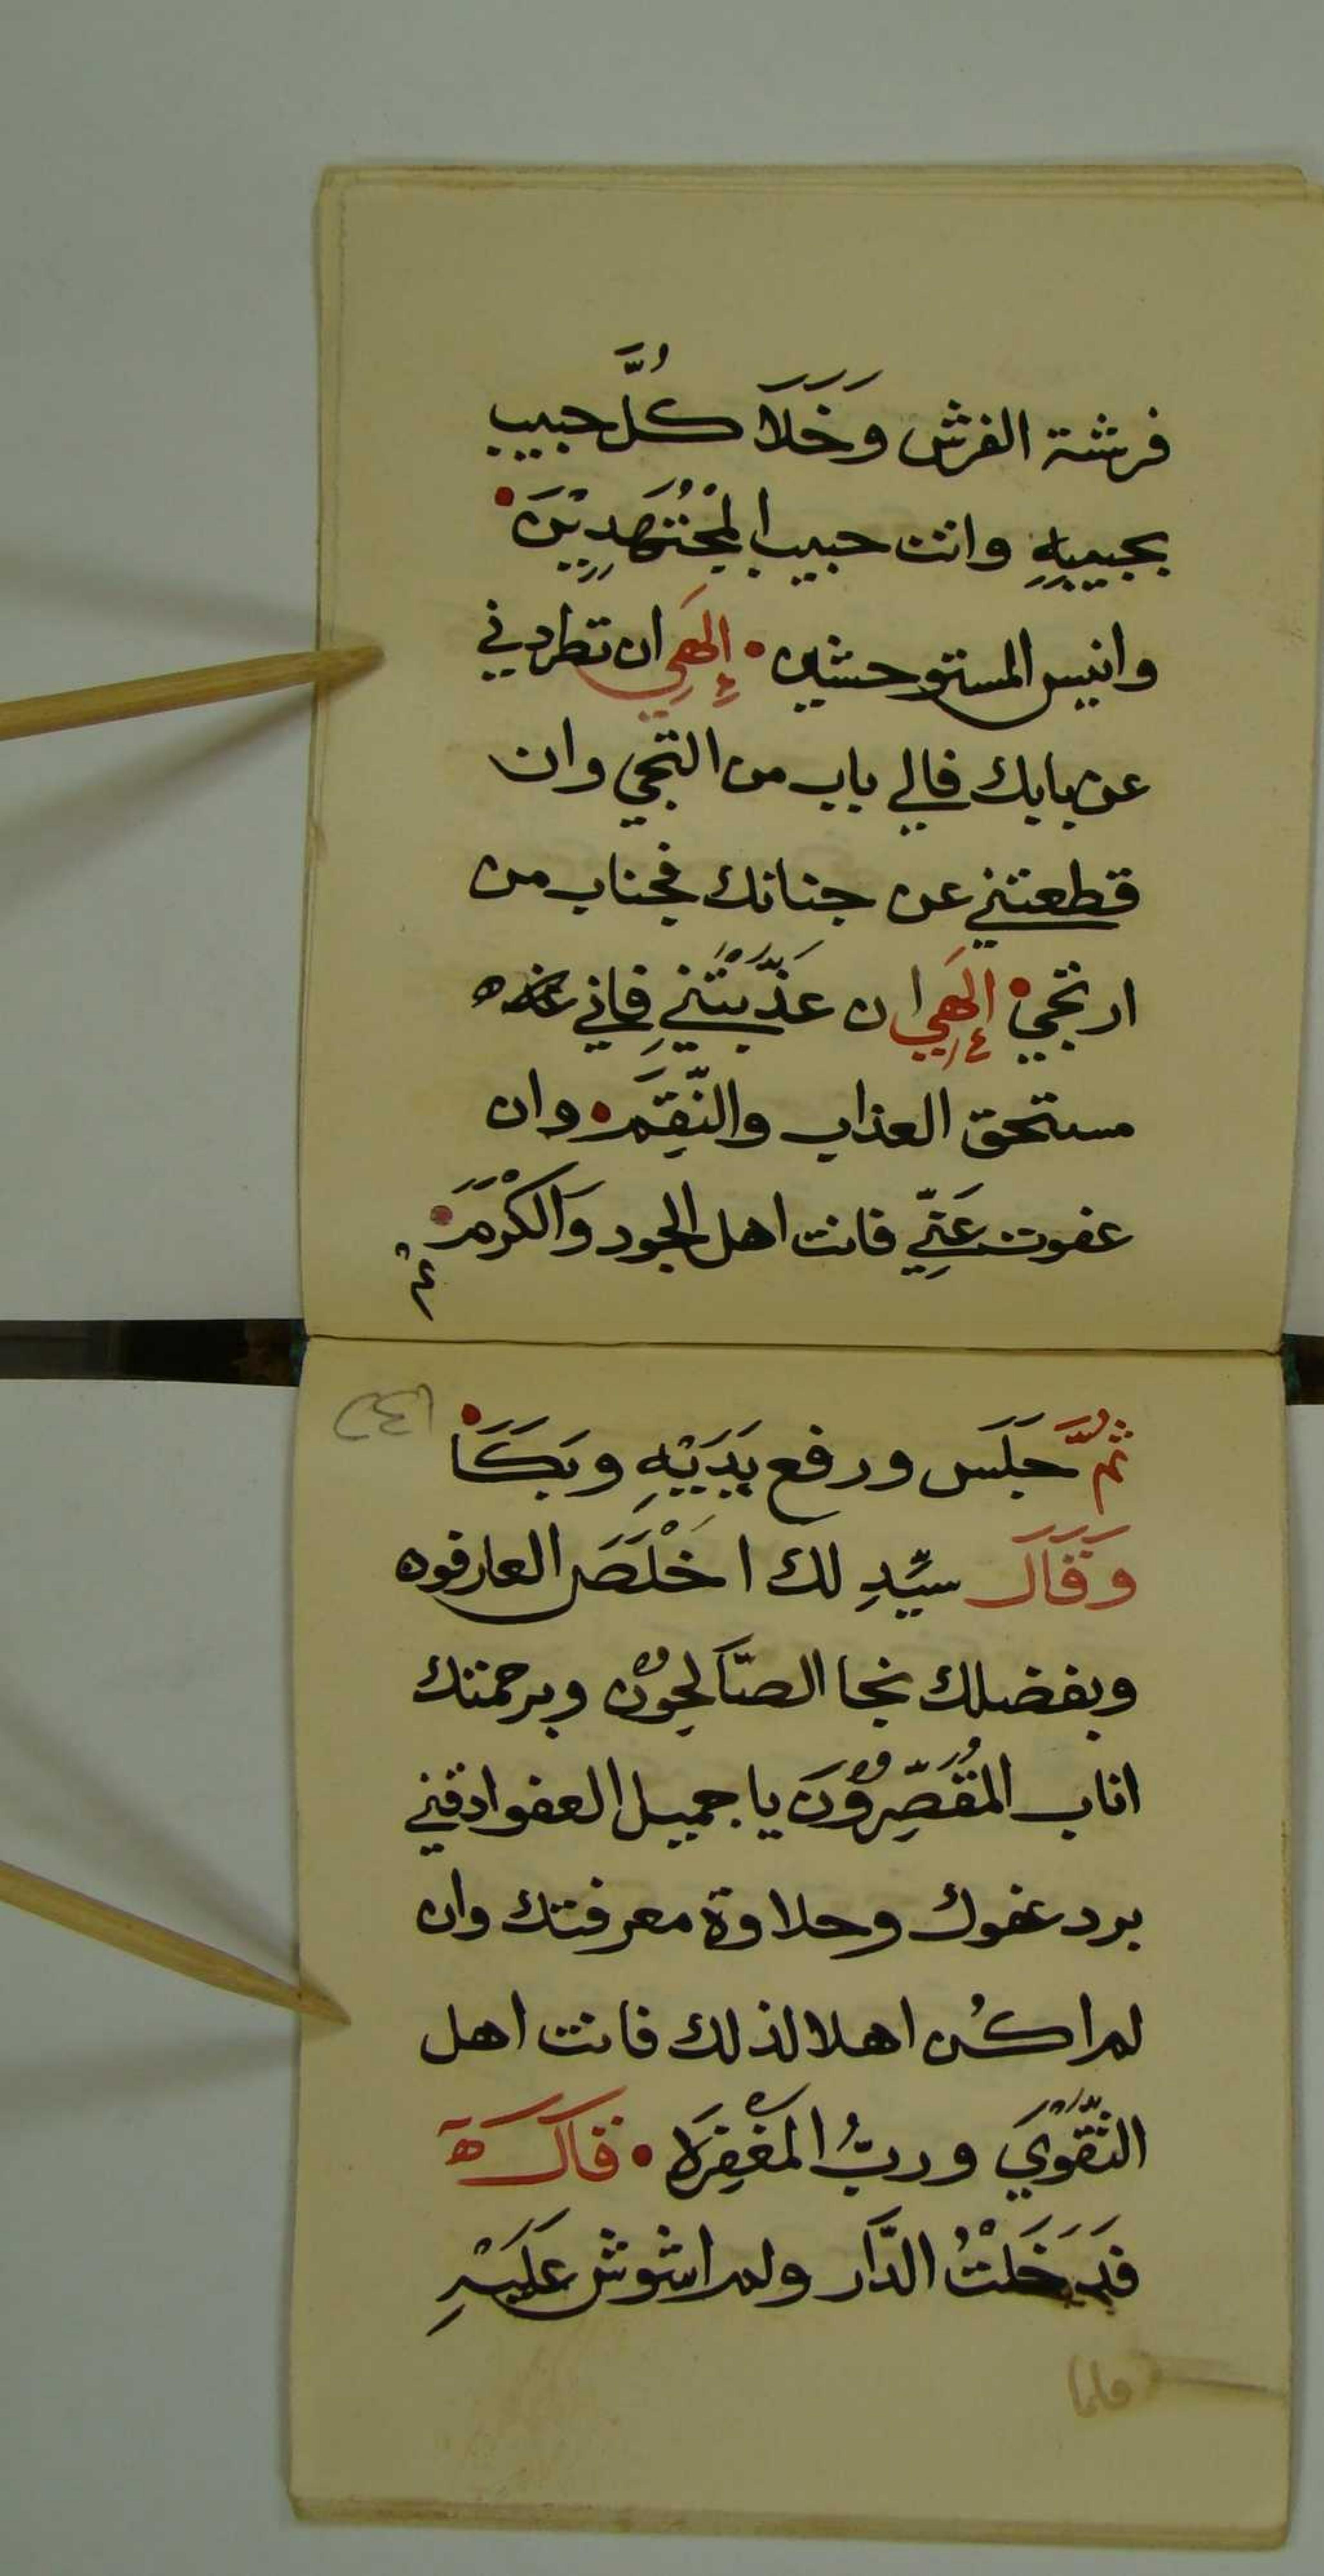 فرشة الفرش وَخَلَا كُلَّ حبيب
بحبيبِهِ وانت حبيب المُجْتَهِدِيْنَ
وانيس المستوحشين • إِلهَي ان تطردني
عن بابك فالي باب من التجي وان
قطعتني عن جنانك فجناب من
ارتجي • إِلهَي ان عَذَّبْتَنِي فاني
مستحق العذاب والنِّقَم • وان
عفوت عَنِّي فانت اهل الجود وَالكَرْمَ
ثُمَّ جَلَسَ ورفع يَدَيْهِ وبَكَا
وَقَالَ سيِّدِ لك اخْلَصَ العارفون
وبفضلك نجا الصَّالِحُوْن وبرحمتك
اناب المُقَصِّرُوْنَ يا جميل العفو اذقني
برد عفوك وحلاوة معرفتك وان
لم اكُن اهلا لذلك فانت اهل
التَّقْوَي وربُّ المَغْفِرَه • قَالَ
فَدَخَلْتُ الدَّار ولم اشوش عَلَيْهِ
فلما